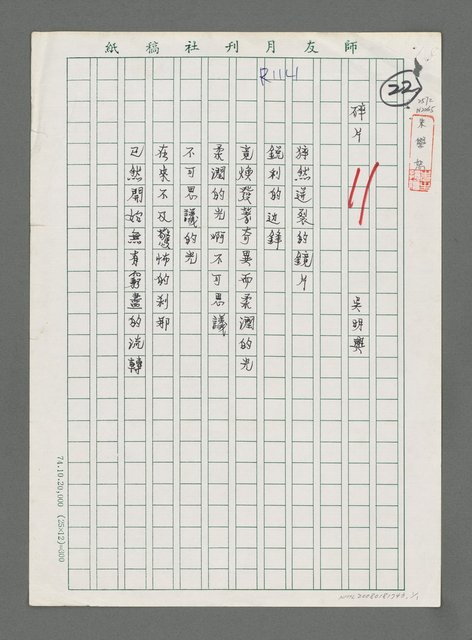 師友月刊社稿紙
R114
22
2572
N2065
碎片
吳明興
猝然迸裂的鏡片
銳利的边鋒
竟煥發著奇異而柔潤的光
柔潤的光啊不可思議
不可思議的光
在來不及驚怖的剎那
已然開始無有窮盡的流轉
74.10.20,000 (25×12)=300